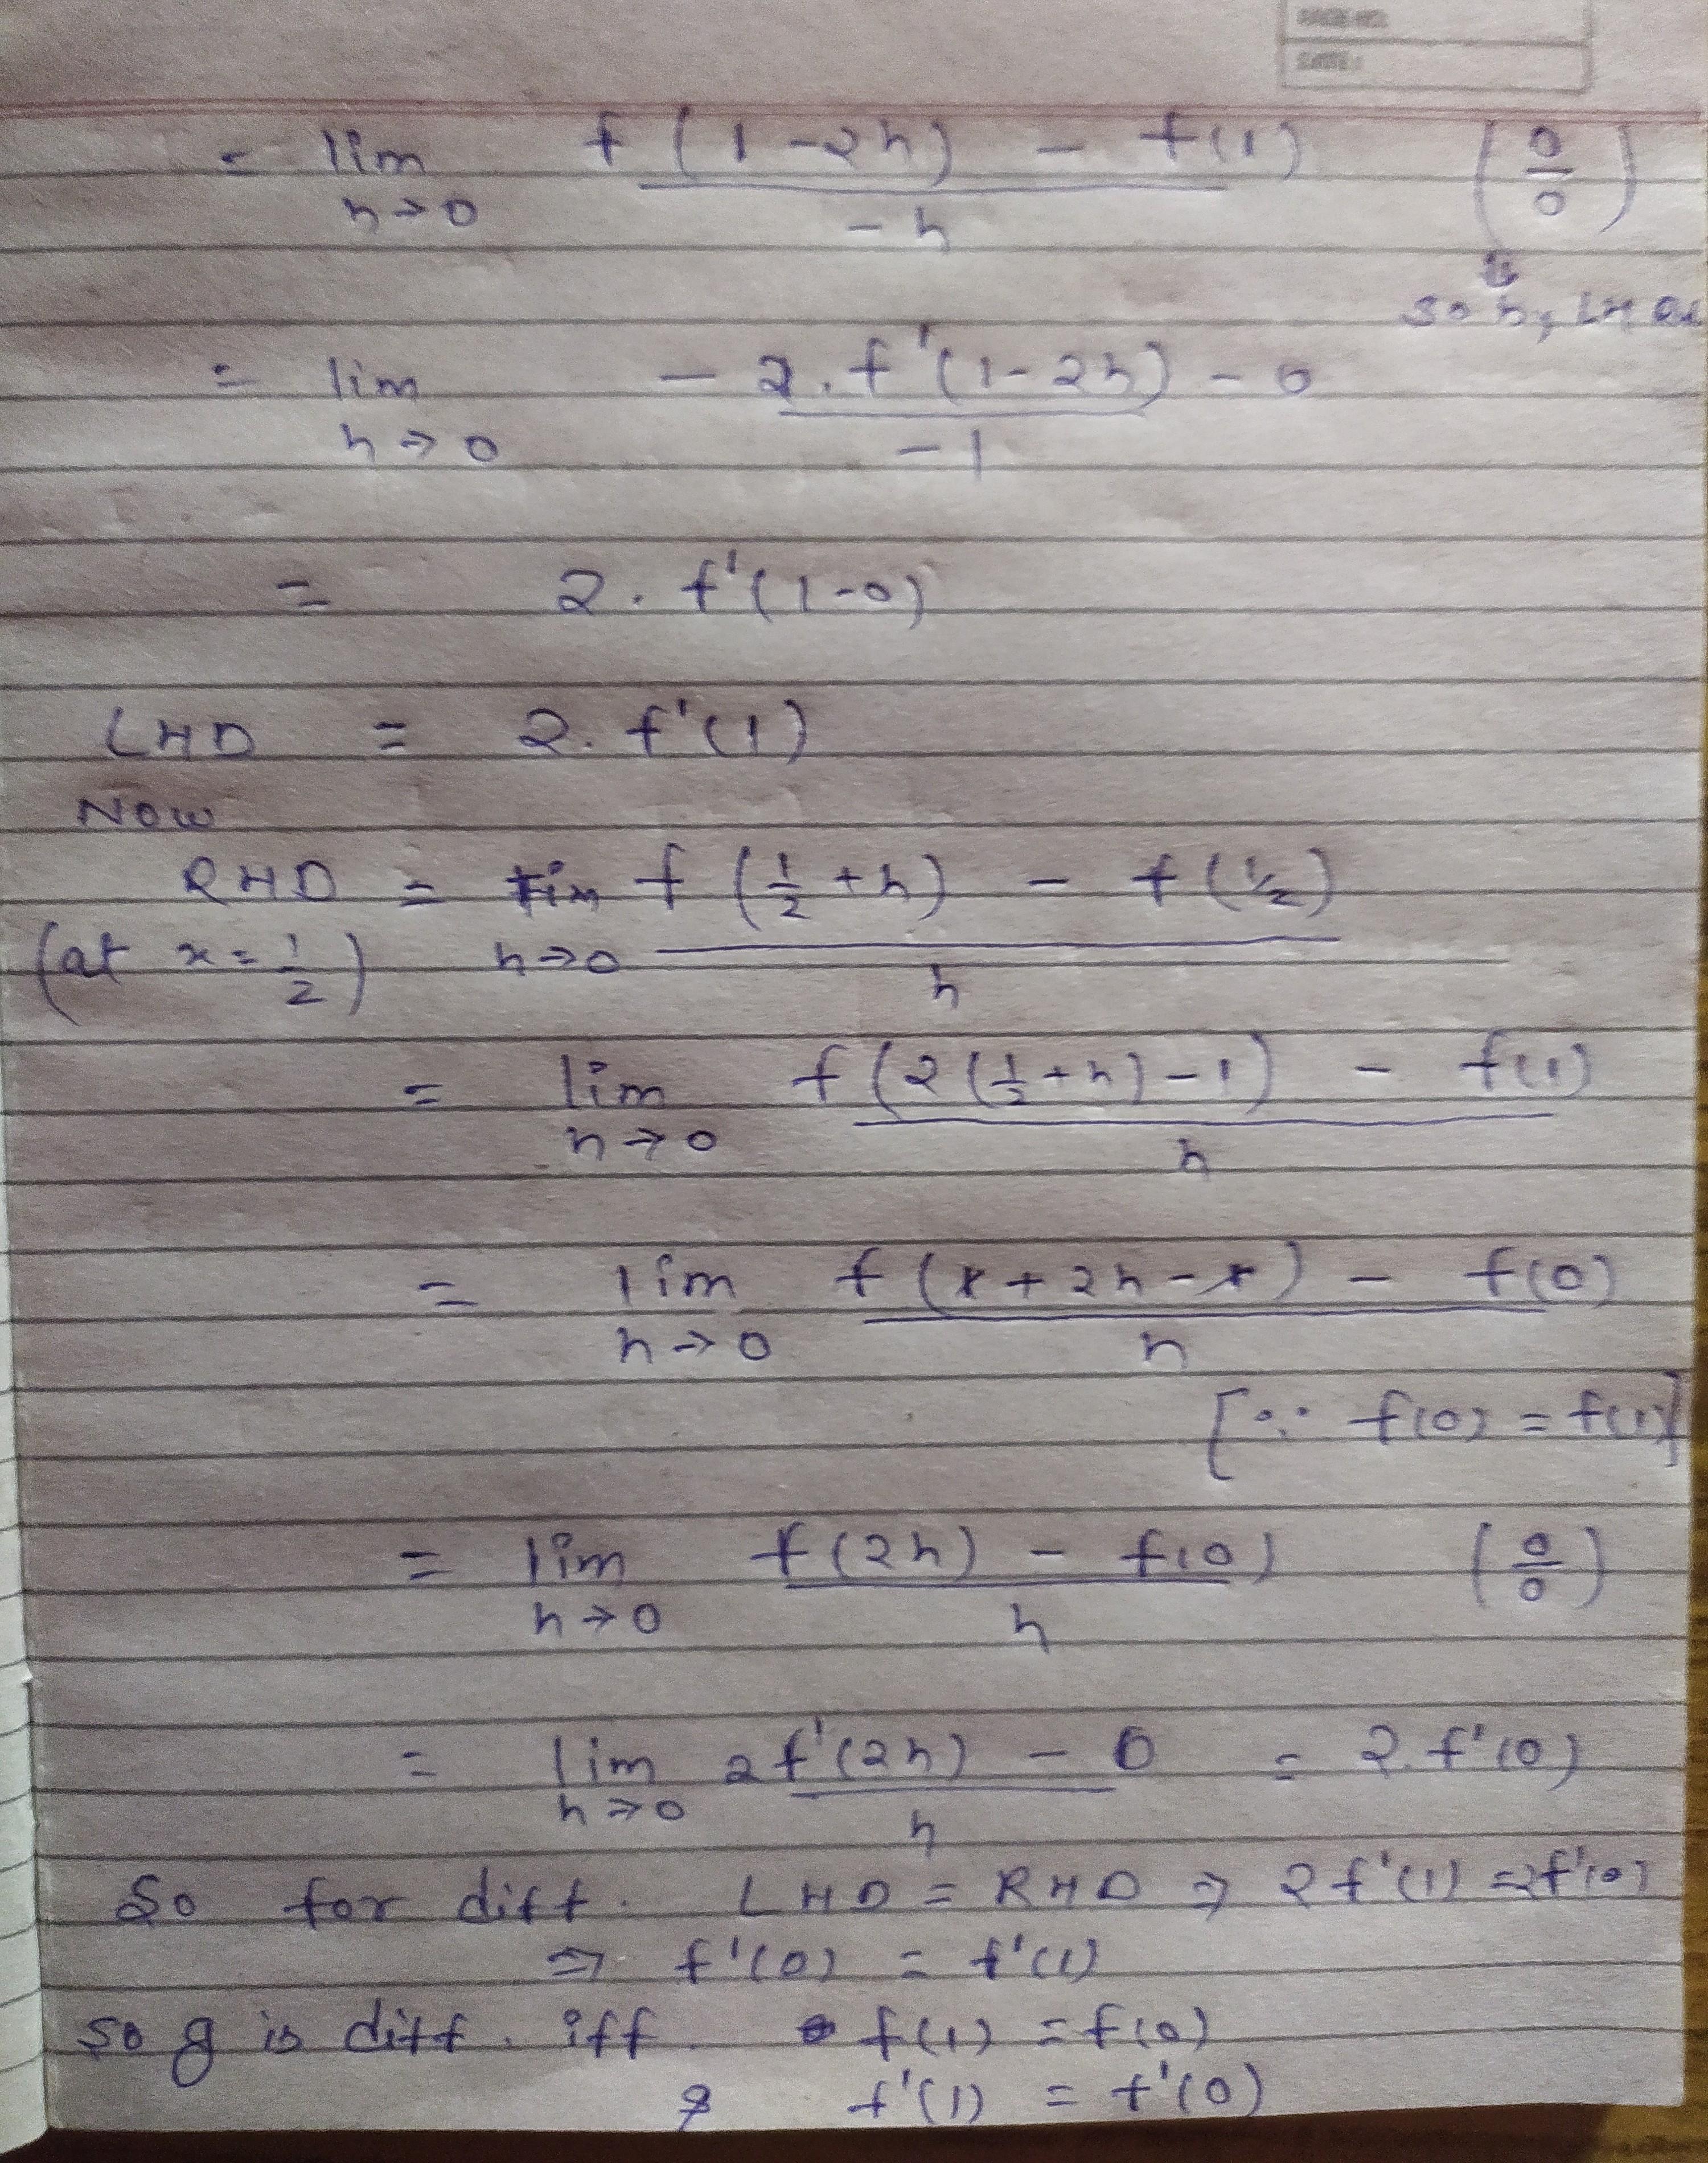 PAGE NO.
DATE:
= lim h→0 f(1-2h) - f(1) / -h (0/0)
so by LH
= lim h→0 -2.f'(1-2h) - 0 / -1
= 2.f'(1-0)
LHD = 2.f'(1)
NOW
RHD = lim h→0 f(1/2+h) - f(1/2) / h
(at x=1/2)
= lim h→0 f(2(1/2+h)-1) - f(1) / h
= lim h→0 f(1+2h-1) - f(0) / h
[∵ f(0) = f(1)]
= lim h→0 f(2h) - f(0) / h (0/0)
= lim h→0 2f'(2h) - 0 / h = 2.f'(0)
So for diff. LHD = RHD ⇒ 2f'(1) = 2f'(0)
⇒ f'(0) = f'(1)
so g is diff. iff f(1) = f(0)
& f'(1) = f'(0)